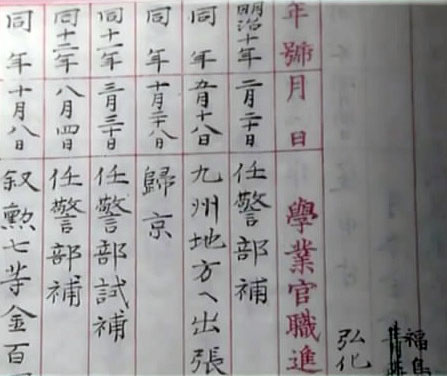 福島
弘化
年號 月日 學業官職進
明治十年 二月二十日 任警部補
同年 五月十八日 九州地方へ出張
同年 十月二十八日 歸京
同十一年 三月三十日 任警部試補
同十二年 八月四日 任警部補
同年 十月八日 叙勲七等金百